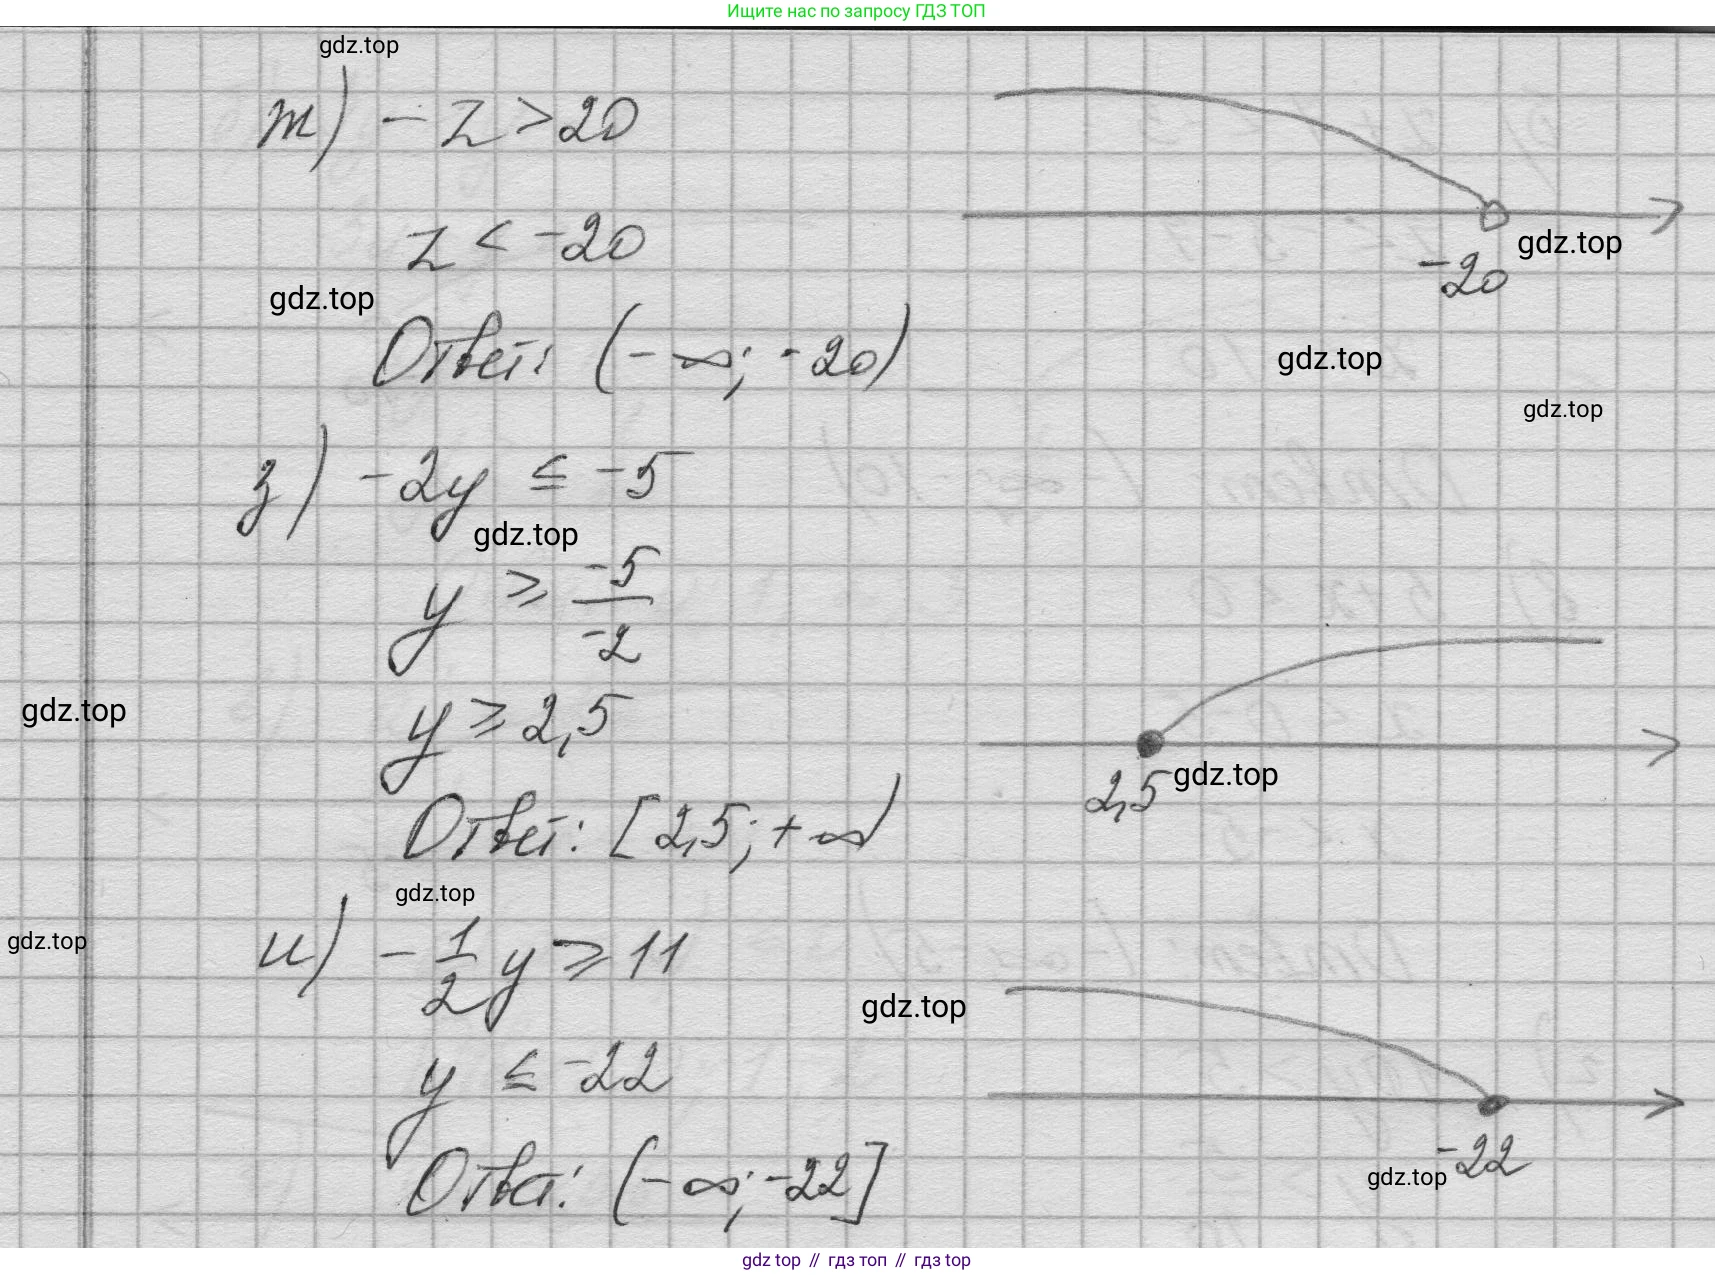 Ищите нас по запросу ГДЗ ТОП
gdz.top
ж) - z > 20
z < -20
-20
gdz.top
gdz.top
Ответ: (-∞; -20)
gdz.top
gdz.top
з) -2y ≤ -5
gdz.top
y ≥ -5/-2
gdz.top
y ≥ 2,5
2,5
gdz.top
Ответ: [2,5; +∞)
gdz.top
gdz.top
и) - 1/2 y ≥ 11
gdz.top
y ≤ -22
-22
gdz.top
Ответ: (-∞; -22]
gdz top // гдз топ // gdz top